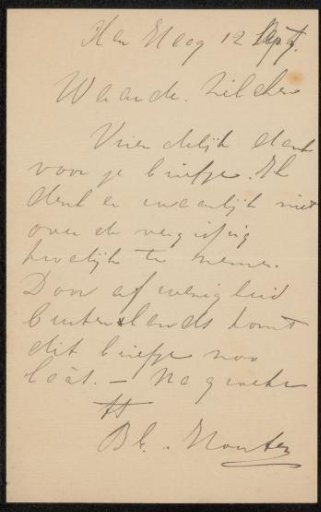 Den Haag 12 Sept.
Waarde Zilcken
Vriendelijk dank
voor je briefje. Ik
denk er waarlijk niet
over de vergissing
kwalijk te nemen.
Door afwezigheid
buitenslands komt
dit briefje zoo
laat. — Na groete
tt